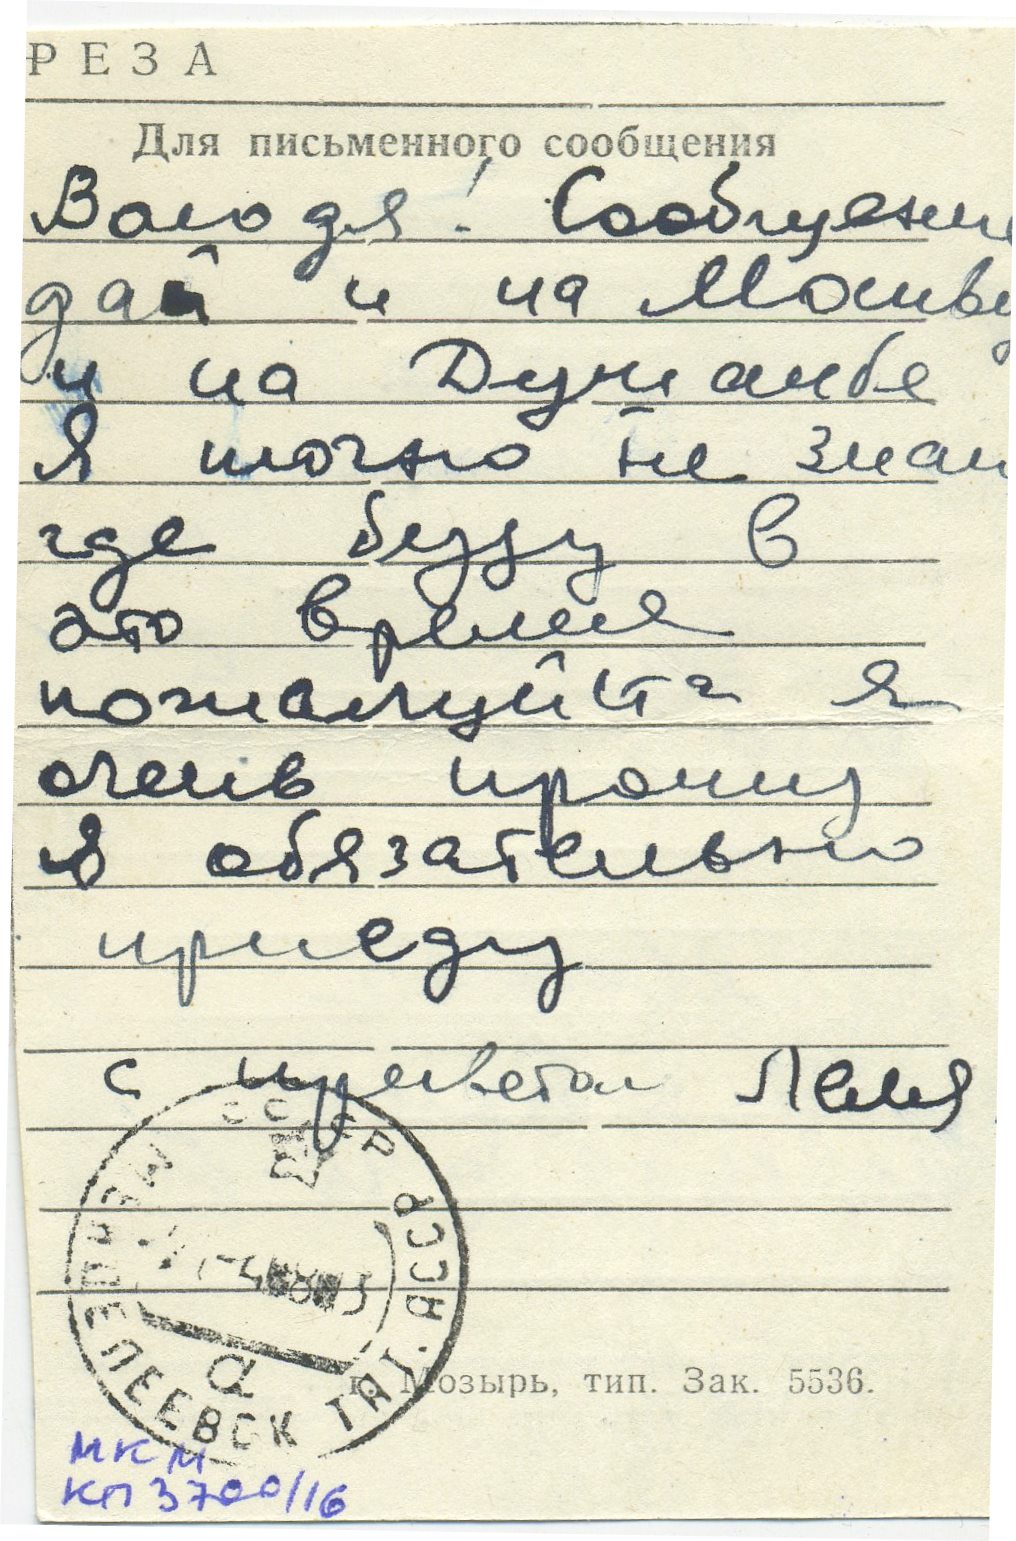 РЕЗА
Для письменного сообщения
Володя! Сообщени
дай и на Москву
и на Душанбе
Я точно не знаю
где буду в
это время
пожалуйста я
очень прошу
Я обязательно
приеду
с приветом Леня
СССР
МЕНДЕЛЕЕВСК ТАТ. АССР
а
г. Мозырь, тип. Зак. 5536.
МКМ
КП 3700/16